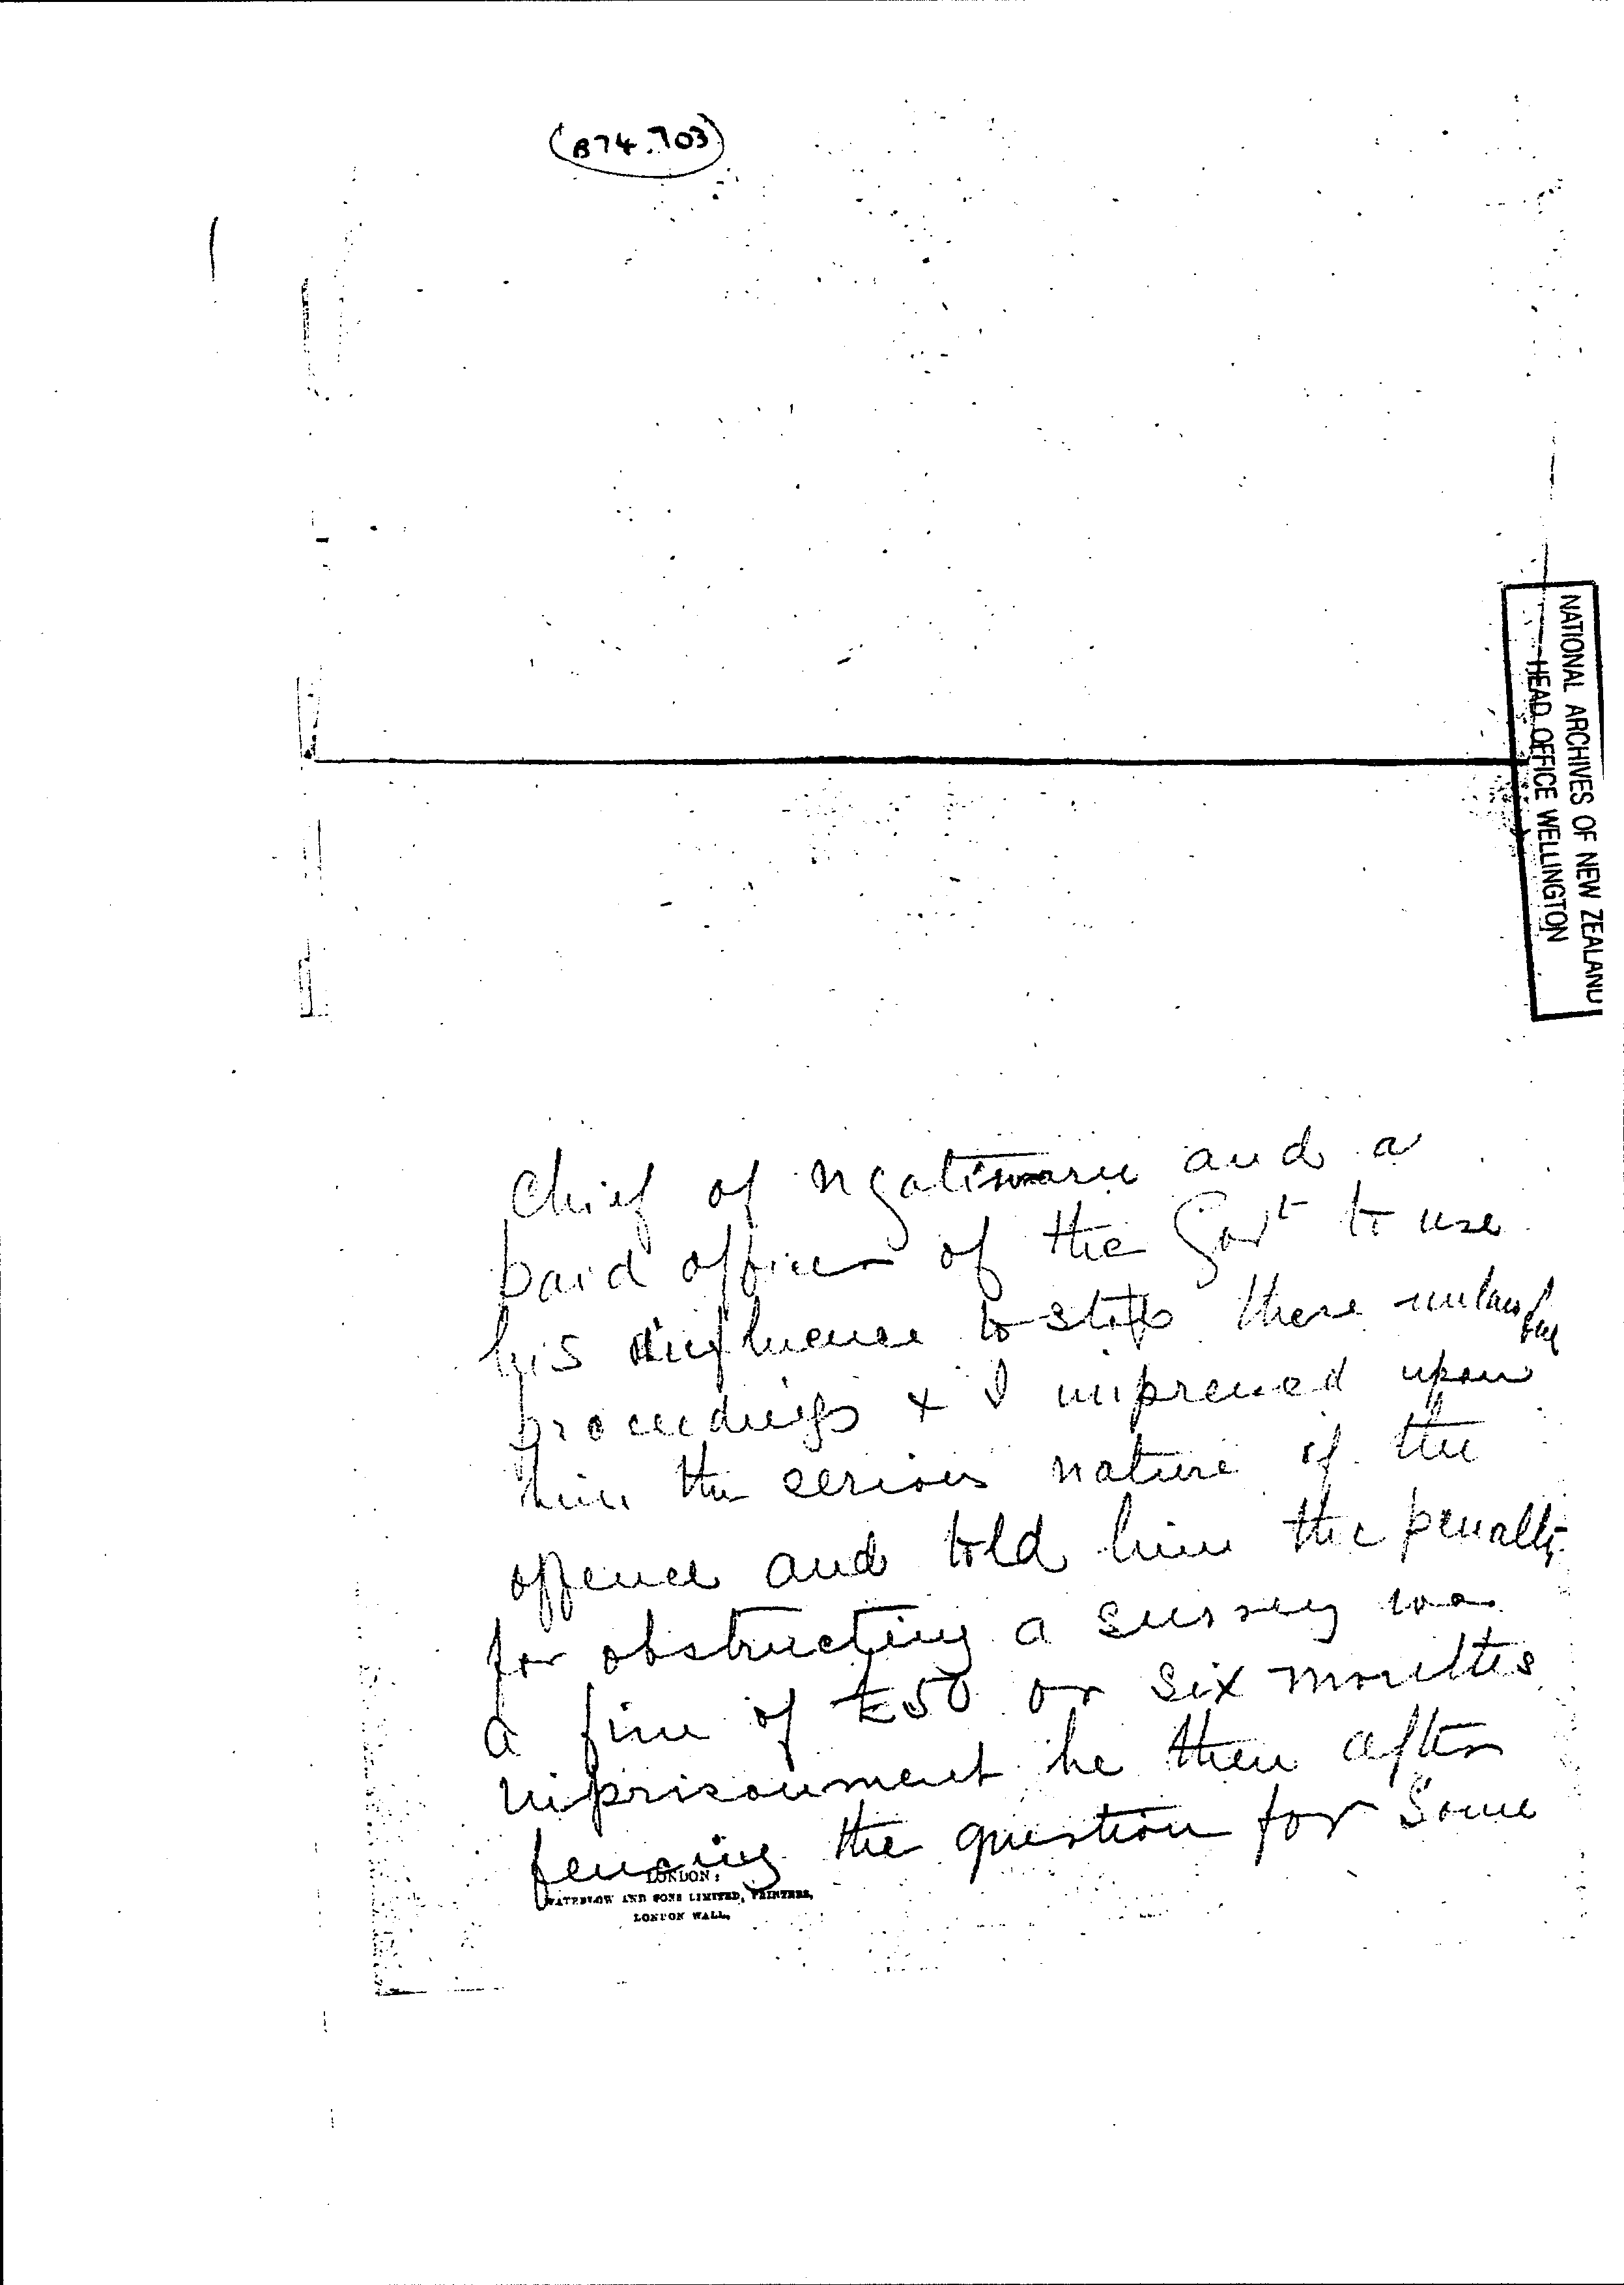 (B74.703)
NATIONAL ARCHIVES OF NEW ZEALAND
HEAD OFFICE WELLINGTON
Chief of Ngatimaru and a
paid officer of the Govt to use
his influence to stop these unlawful
proceedings & I impressed upon
him the serious nature of the
offence and told him the penalty
for obstructing a survey was
a fine of £50 or six months
imprisonment he then after
fencing the question for some
LONDON:
WATERLOW AND SONS LIMITED, PRINTERS,
LONDON WALL.